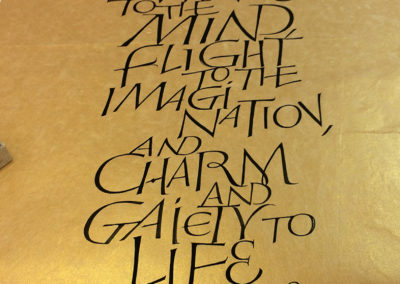 TO THE
MIND,
FLIGHT
TO THE
IMAGI
NATION,
AND
CHARM
AND
GAIETY TO
LIFE